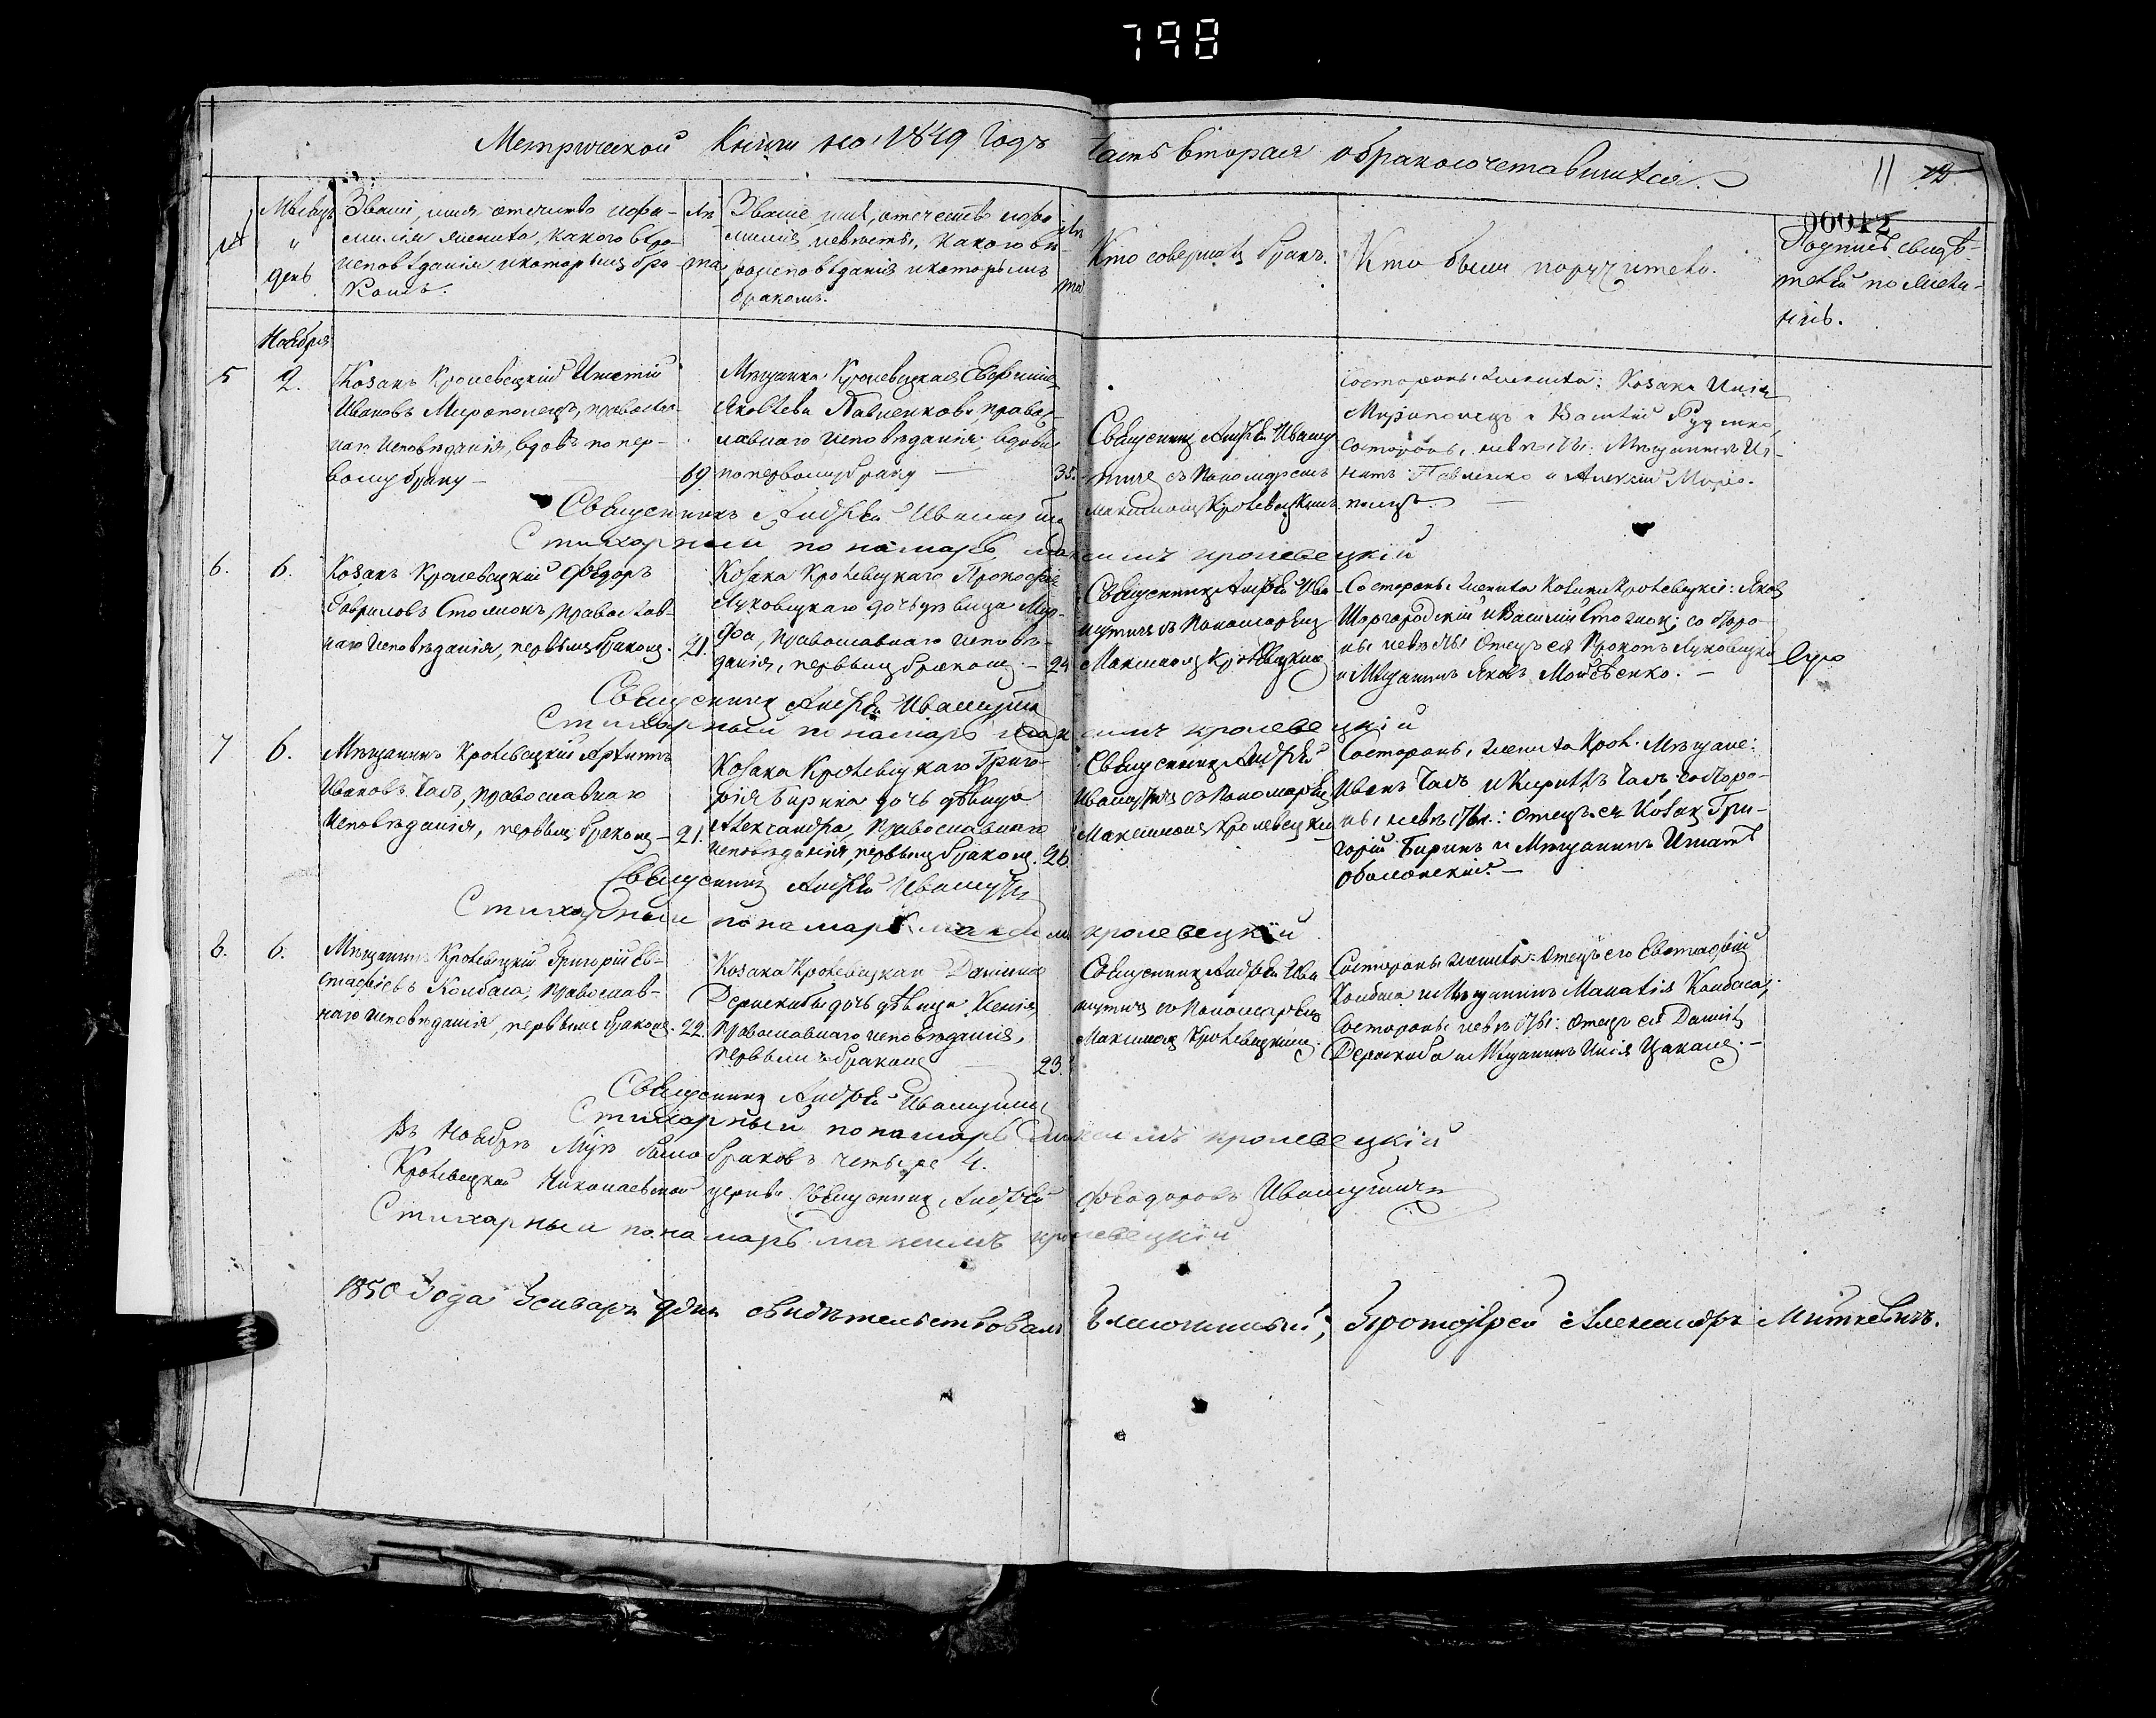 798
Метрической Книги на 1849 Годъ Часть вторая о бракосочетавшихся.
11
00012
№
Мѣсяцъ
"
день
Званіе, имя отчество и фа-
милія жениха, какого вѣро-
исповѣданія и которымъ бра-
комъ.
Лѣ
та
Званіе, имя, отечество и фа
милія невѣсты, какого вѣ-
роисповѣданія и которымъ
бракомъ.
Лѣ
та
Кто совершалъ бракъ.
Кто были поручители.
Подпись свидѣ-
телей по желa-
нію.
Ноября
5
2.
Козакъ Кролевецкій Игнатій
Ивановъ Мирополецъ, православ
наго исповѣданія, вдовъ по пер-
вому браку —
69
Мѣщанка Кролевецкая Евфимія
Яковлева Павленкова, правос
лавнаго исповѣданія, вдова
по первому браку —
35.
Священникъ Андрей Ивашу
тичъ съ Пономаремъ
Максимомъ Кролевецкимъ
Со стороны жениха: Козаки Илія
Мирополецъ и Василій Руденко,
со стороны невѣсты: Мѣщанинъ Иг-
натъ Павленко и Алексій Миро-
полецъ. —
Священникъ Андрей Ивашутичъ
Стихарный понамарь максимъ кролевецкій
6.
6.
Козакъ Кролевецкій Федоръ
Гавриловъ Стомокъ, православ-
наго исповѣданія, первымъ бракомъ.
21.
Козака Кролевецкаго Прокофія
Луковецкаго дочь дѣвица Мар-
фа, православнаго исповѣ-
данія, первымъ бракомъ. —
24
Священникъ Андрей Ива
шутичъ съ Пономаремъ
Максимомъ Кролевецкимъ
Со стороны жениха Козаки Кролевецкіе: Яковъ
Шаргородскій и Василій Стомок; со сторо-
ны невѣсты Отецъ ея Прокопъ Луковецкій
и Мѣщанинъ Яковъ Моисѣенко. —
Священникъ Андрей Ивашутичъ
Стихарный понамарь максимъ кролевецкій
7
6.
Мѣщанинъ Кролевецкій Архипъ
Ивановъ Чалъ, православнаго
исповѣданія, первымъ бракомъ —
21.
Козака Кролевецкаго Григо-
рія Бирика дочь дѣвица
Александра, православнаго
исповѣданія, первымъ бракомъ.
26.
Священникъ Андрей
Ивашутичъ съ Пономаремъ
Максимомъ Кролевецкимъ
Со стороны жениха Крол. Мѣщане:
Иванъ Чалъ и Кириллъ Чалъ; со сторо-
ны невѣсты: Отецъ ея Козакъ Гри-
горій Бирикъ и Мѣщанинъ Игнатъ
Оболонскій. —
Священникъ Андрей Ивашутичъ
Стихарный понамарь максимъ кролевецкій
8.
6.
Мѣщанинъ Кролевецкій Григорій Ев-
стафіевъ Колбаса, православ-
наго исповѣданія, первымъ бракомъ.
22.
Козака Кролевецкаго Даніила
Дерюкибы дочь дѣвица Ксенія,
православнаго исповѣданія,
первымъ бракомъ —
23.
Священникъ Андрей Ива
шутичъ съ Пономаремъ
Максимомъ Кролевецкимъ.
Со стороны жениха: Отецъ его Евстафій
Колбаса и Мѣщанинъ Малахія Колбаса;
Со стороны невѣсты: Отецъ ея Даніилъ
и Мѣщанинъ Илія —
Священникъ Андрей Ивашутичъ
Стихарный понамарь максимъ кролевецкій
Въ Ноябрѣ мцѣ было браковъ четыре 4.
Кролевецкой Николаевской церкви Священникъ Андрей Феодоровъ Ивашутичъ
Стихарный понамарь максимъ кролевецкій
1850 Года Генваря 9 дня свидѣтельствовалъ Благочинный, Протоіерей Александръ Миткевичъ.